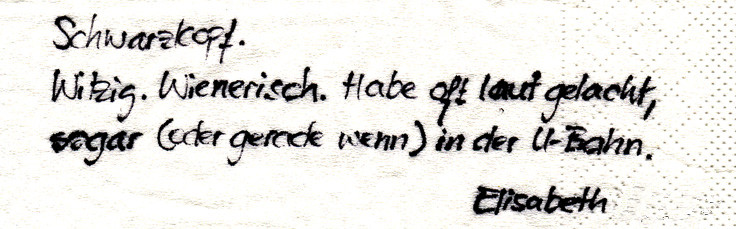 Schwarzkopf.
Witzig. Wienerisch. Habe oft laut gelacht,
sogar (oder gerade wenn) in der U-Bahn.
Elisabeth